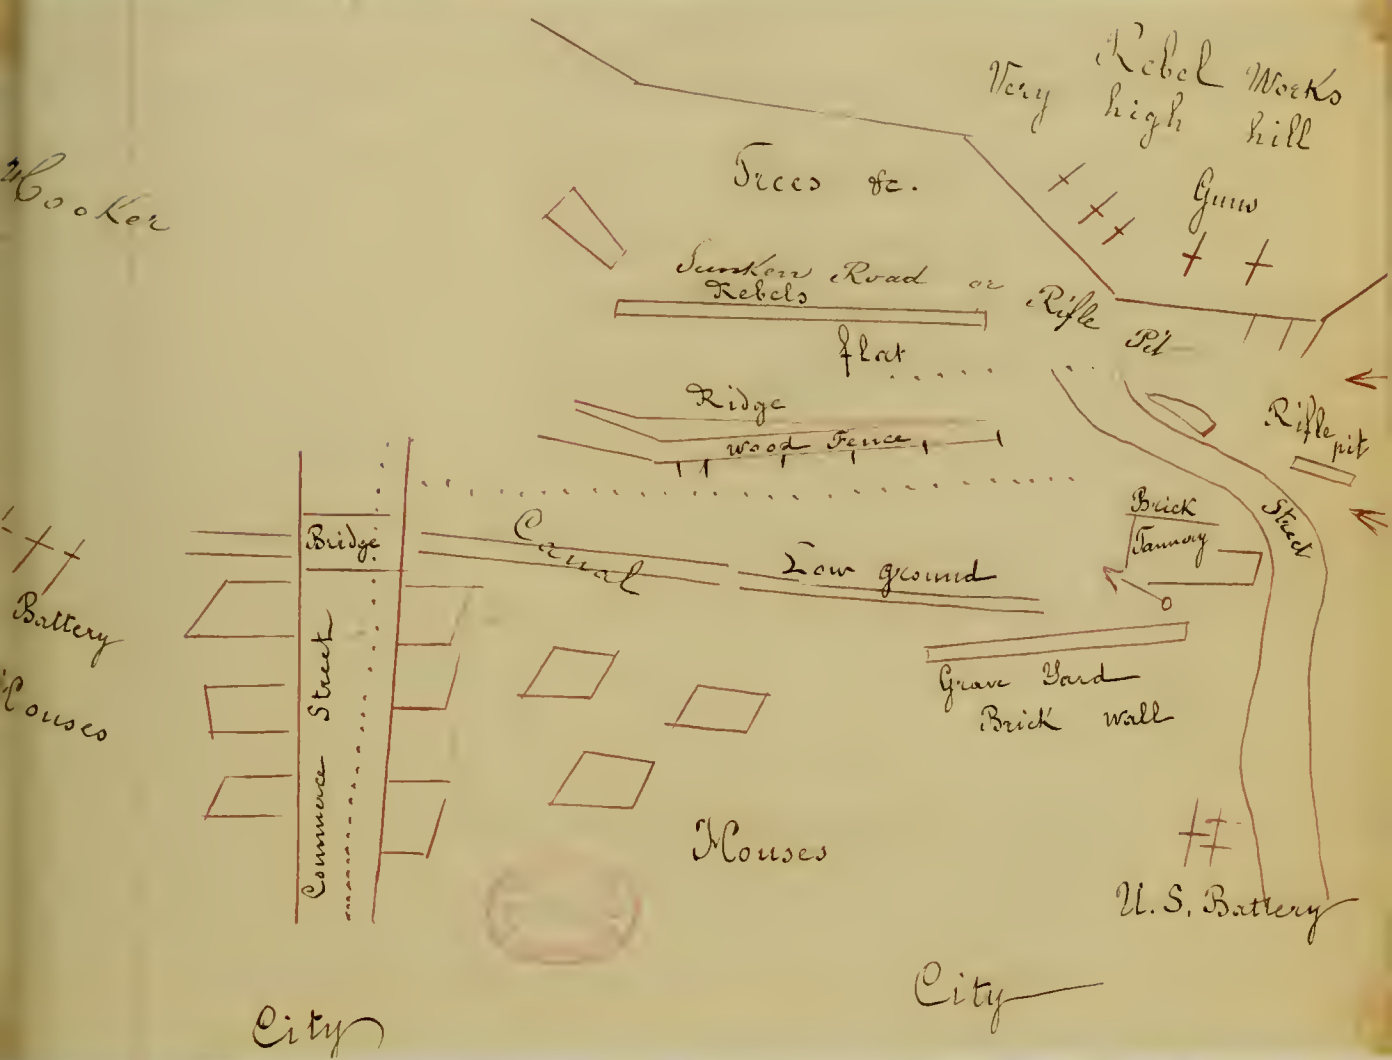 Rebel Works
Very high hill
Guns
Trees &c.
Sunken Road or Rifle Pit
Rebels
flat
Ridge
wood Fence
Rifle pit
Street
Brick
Tannery
Bridge
Canal
Low ground
Battery
Houses
Commerce Street
Grave Yard
Brick wall
Houses
U.S. Battery
City
City